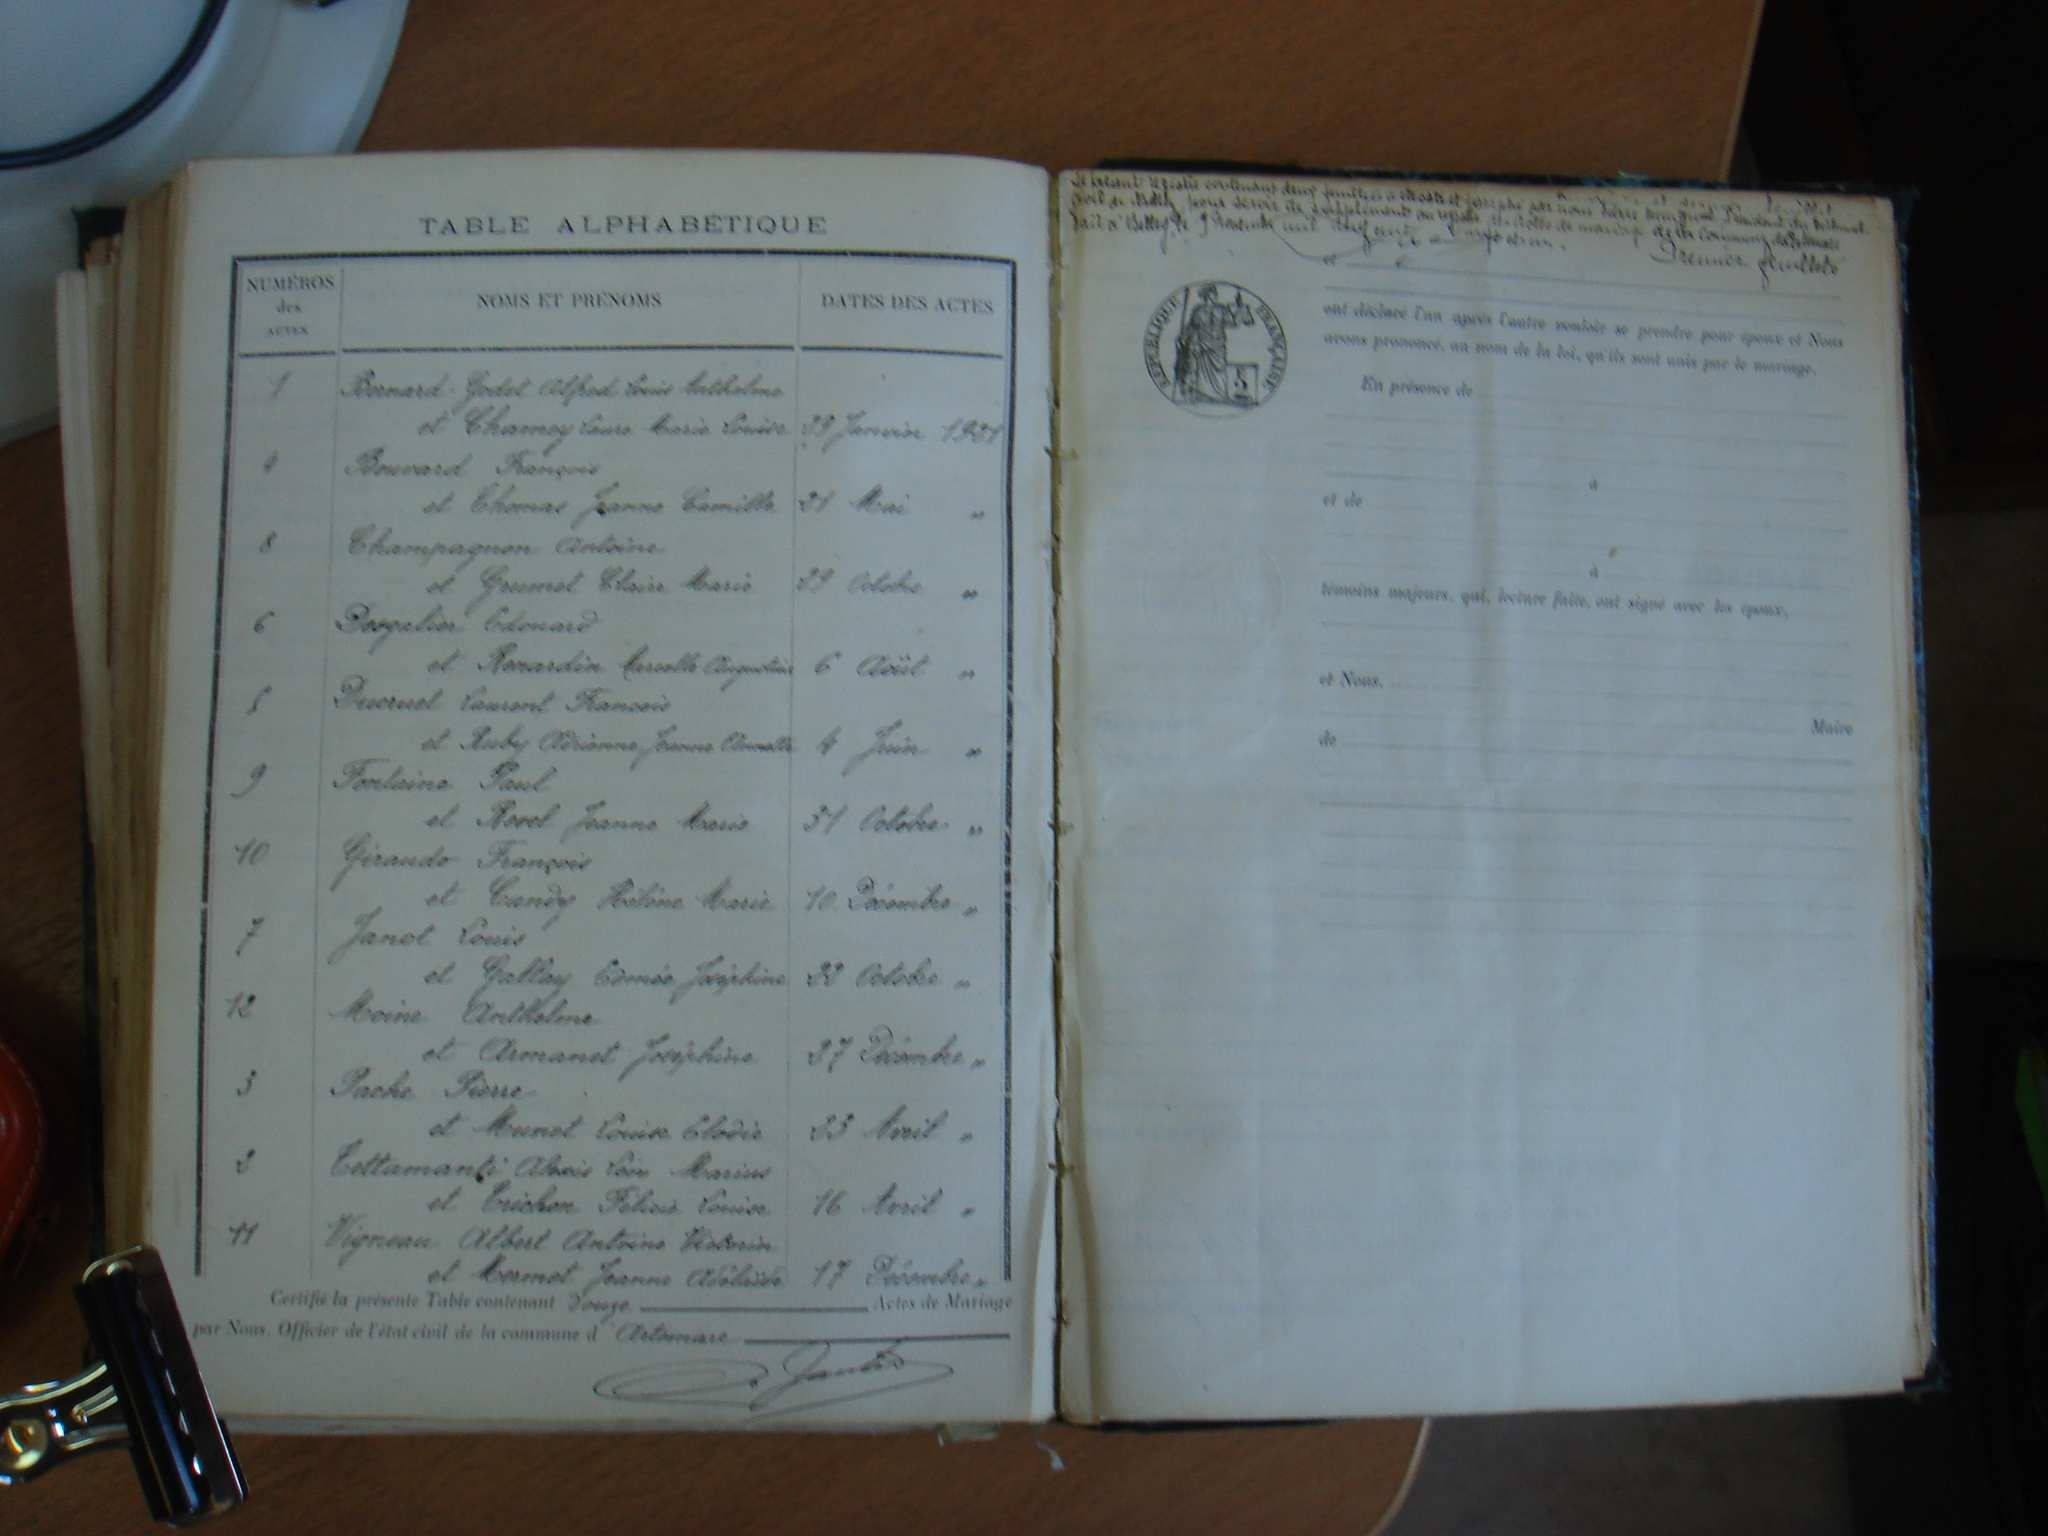 TABLE ALPHABÉTIQUE
NUMÉROS des ACTES
NOMS ET PRÉNOMS
DATES DES ACTES
1 Bernard-Godet Alfred Louis Anthelme
et Chamoy Laure Marie Louise 29 Janvier 1921
4 Bouvard François
et Thomas Jeanne Camille 21 Mai "
8 Champagnon Antoine
et Grumet Claire Marie 29 Octobre "
6 Desgelier Edouard
et Renardin Marcelle Augustine 6 Août "
5 Ducruet Laurent François
et Ruby Adrienne Jeanne Annette 4 Juin "
9 Fontaine Paul
et Revel Jeanne Marie 31 Octobre "
10 Giraudo François
et Candy Hélène Marie 10 Décembre "
7 Janot Louis
et Gallay Edmée Joséphine 22 Octobre "
12 Moine Anthelme
et Armanet Joséphine 27 Décembre "
3 Pache Pierre
et Munet Louise Elodie 23 Avril "
2 Tettamanti Alexis Marius
et Trichon Félicie Louise 16 Avril "
11 Vigneau Albert Antoine Victorin
et Mermet Jeanne Adélaïde 17 Décembre "
Certifié la présente Table contenant Douze Actes de Mariage
par Nous, Officier de l'état civil de la commune d'Artemare
Le présent registre contenant deux feuillets
civil de Belley pour servir de supplément au registre des Actes de mariage de la commune d'Artemare
Fait à Belley le 9 Novembre mil neuf cent vingt et un.
Premier feuillet
et
RÉPUBLIQUE FRANÇAISE
ont déclaré l'un après l'autre vouloir se prendre pour époux et Nous
avons prononcé, au nom de la loi, qu'ils sont unis par le mariage.
En présence de
à
et de
à
témoins majeurs, qui, lecture faite, ont signé avec les époux,
et Nous,
Maire
de